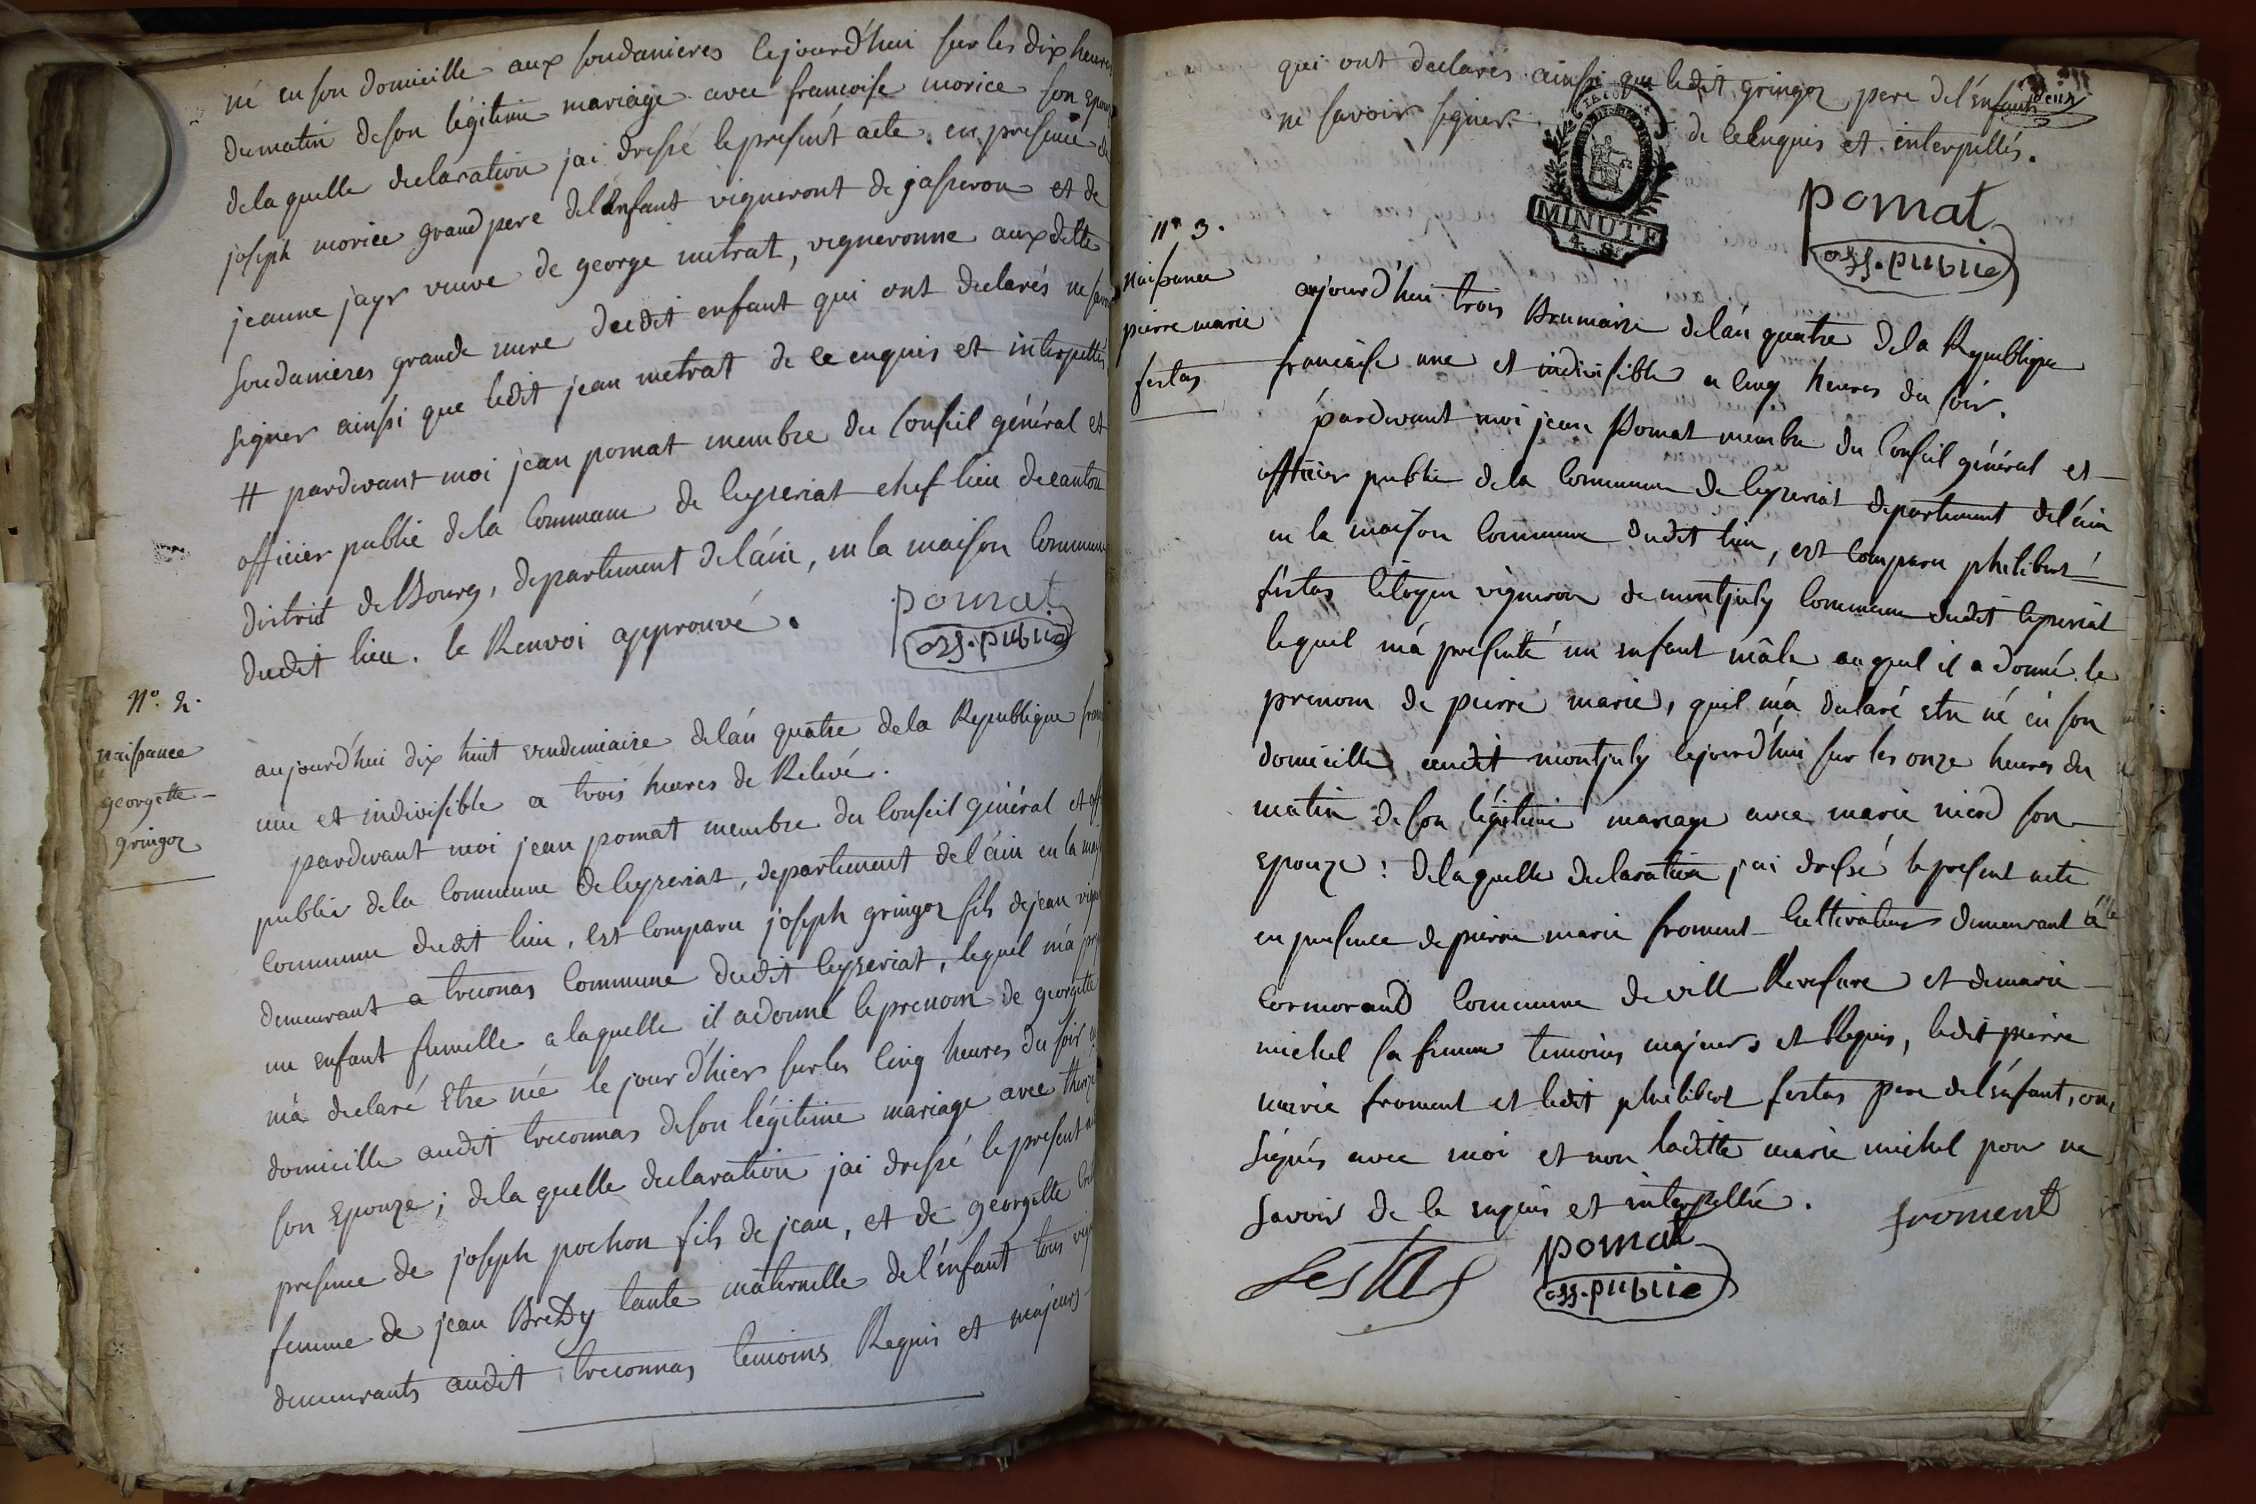 né en son domicille aux soudanieres cejourd'hui sur les dix heures
du matin de son légitime mariage avec francoise morice son epouze
de la quelle declaration jai dressé le present acte. en presence de
joseph morice grand pere de l'enfant vigneront de jasseron et de
jeanne jayr veuve de george metrat, vigneronne auxdittes
soudanieres grande mere dudit enfant qui ont declarés ne savoir
signer ainsi que ledit jean metrat de ce enquis et interpellés
# pardevant moi jean pomat membre du Conseil général et
officier public de la Commune de Ceyzeriat chef lieu de canton
district de Bourg, departement de l'ain, en la maison Commune
dudit lieu. le Renvoi approuvé.
pomat
off. public
N° 2.
naissance
georgette
gringoz
aujourd'hui dix huit vendemiaire de l'an quatre de la Republique
une et indivisible a trois heures de Relevé.
pardevant moi jean pomat membre du Conseil général et off
public de la Commune de Ceyzeriat, departement de l'ain en la
Commune dudit lieu, est Comparu joseph gringoz fils de jean
demeurant a treconas Commune dudit Ceyzeriat, lequel m'a
un enfant femelle a laquelle il a donné le prenom de georgette
m'a declaré Etre née le jour d'hier sur les Cinq heures du soir
domicille audit treconnas de son légitime mariage avec
son Epouze; de la quelle declaration jai dressé le present
presence de joseph pochon fils de jean, et de georgette
femme de jean Bredy tante maternelle de l'enfant tous
demeurants audit treconnas temoins Requis et majeurs
qui ont declarés ainsi que ledit gringoz pere de l'enfant
deux
ne savoir signer. de ce enquis et interpellés.
MINUTE
4. S.
pomat
off. public
N° 3.
naissance
pierre marie
festas
aujourd'hui trois Brumaire de l'an quatre de la Republique
francaise une et indivisible a cinq heures du soir.
pardevant moi jean Pomat membre du Conseil général et
officier public de la Commune de Ceyzeriat departement de l'ain
en la maison Commune dudit lieu, est Comparu philibert
festas Citoyen vigneron de montjuly Commune dudit Ceyzeriat
lequel m'a presenté un enfant mâle auquel il a donné le
prenom de pierre marie, quil m'a declaré etre né en son
domicille audit montjuly cejourd'hui sur les onze heures du
matin de son légitime mariage avec marie nicod son
Epouze: de laquelle declaration j'ai dressé le present acte
en presence de pierre marie froment Cultivateur demeurant a
Cormorand Commune de vill Reversure et de marie
michel sa femme temoins majeurs et Requis, ledit pierre
marie froment et ledit philibert festas pere de l'enfant, ont
signés avec moi et non laditte marie michel pour ne
savoir de ce enquis et interpellée.
froment
festas
pomat
off. public